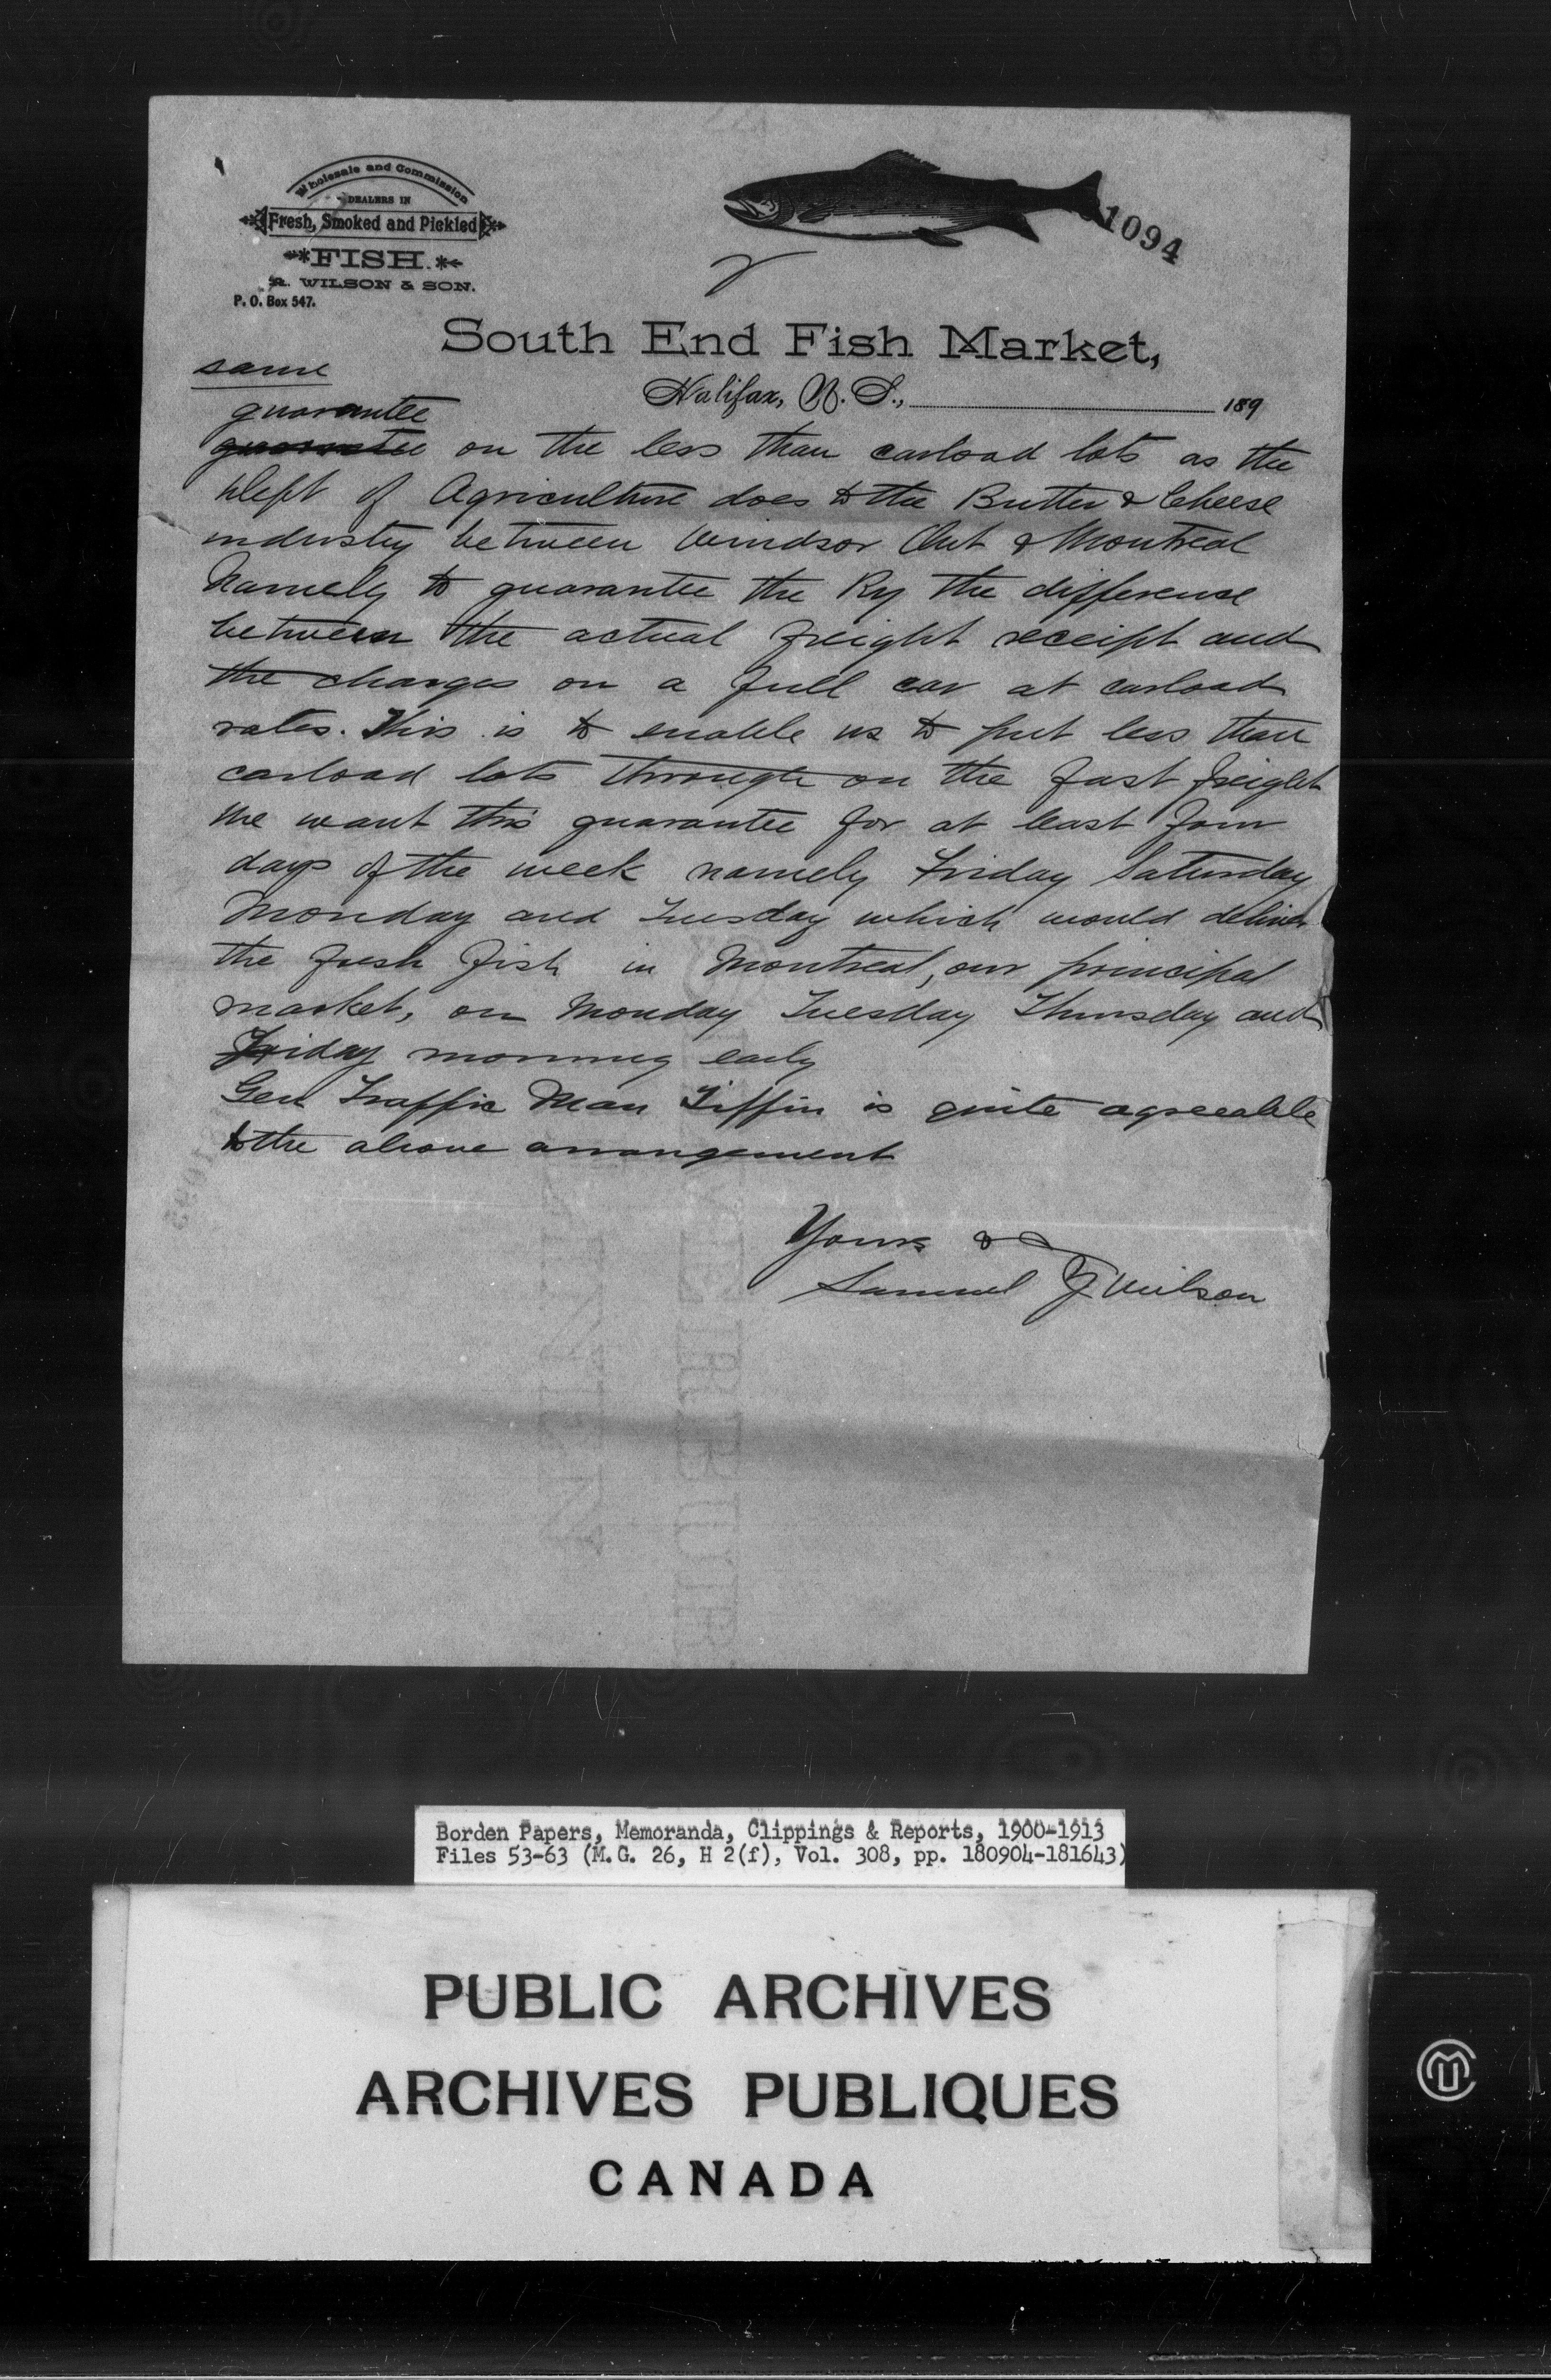 Wholesale and Commission
DEALERS IN
Fresh, Smoked and Pickled
FISH.
WILSON & SON.
P. O. Box 547.
1094
2
South End Fish Market,
Halifax, N. S., 189
same
guarantee
guarantee on the less than carload lots as the
Dept of Agriculture does to the Butter & Cheese
industry between Windsor Ont & Montreal
Namely to guarantee the Ry the difference
between the actual freight receipt and
the charges on a full car at carload
rates. This is to enable us to put less than
carload lots through on the fast freight
We want this guarantee for at least four
days of the week namely Friday Saturday
Monday and Tuesday which would deliver
the fresh fish in Montreal, our principal
market, on Monday Tuesday Thursday and
Friday morning early
Gen Traffic Man Tiffin is quite agreeable
to the above arrangement
Yours &c
Samuel Y Wilson
Borden Papers, Memoranda, Clippings & Reports, 1900-1913
Files 53-63 (M.G. 26, H 2(f), Vol. 308, pp. 180904-181643)
PUBLIC ARCHIVES
ARCHIVES PUBLIQUES
CANADA